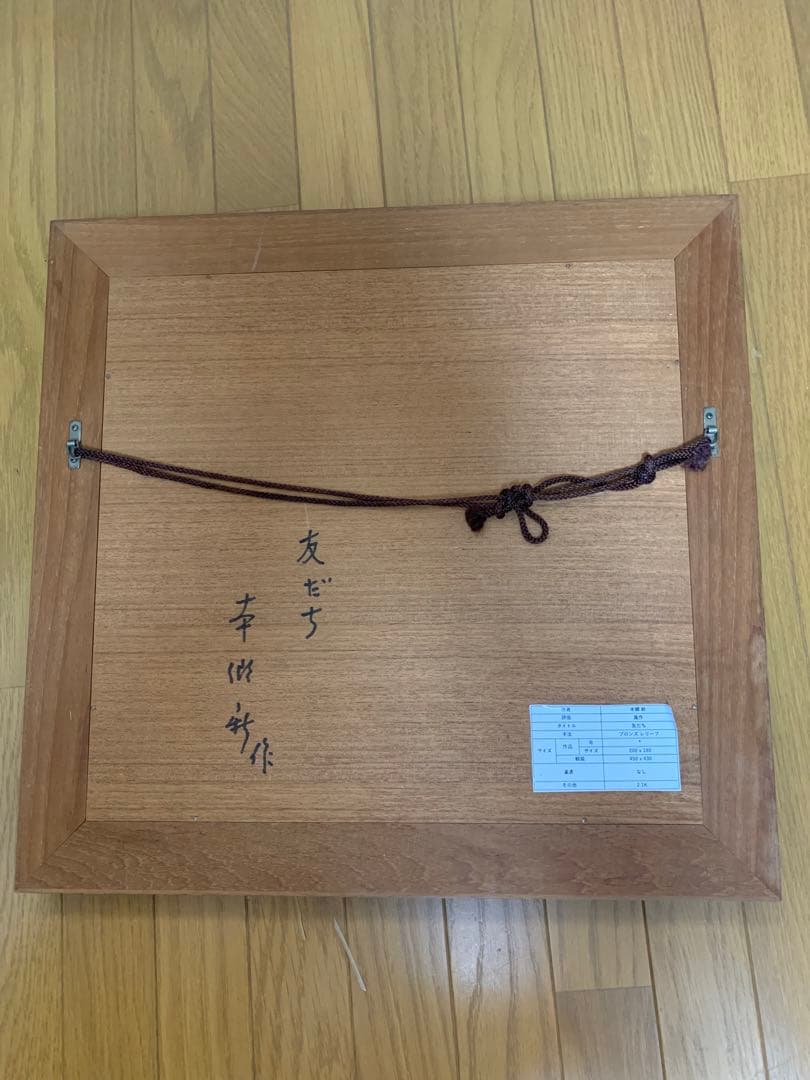 友だち
本郷新作
作者 本郷 新
評価 真作
タイトル 友だち
手法 ブロンズ レリーフ
サイズ 作品 号 *
サイズ 200 x 180
額装 450 x 430
裏書 なし
その他 2.1K